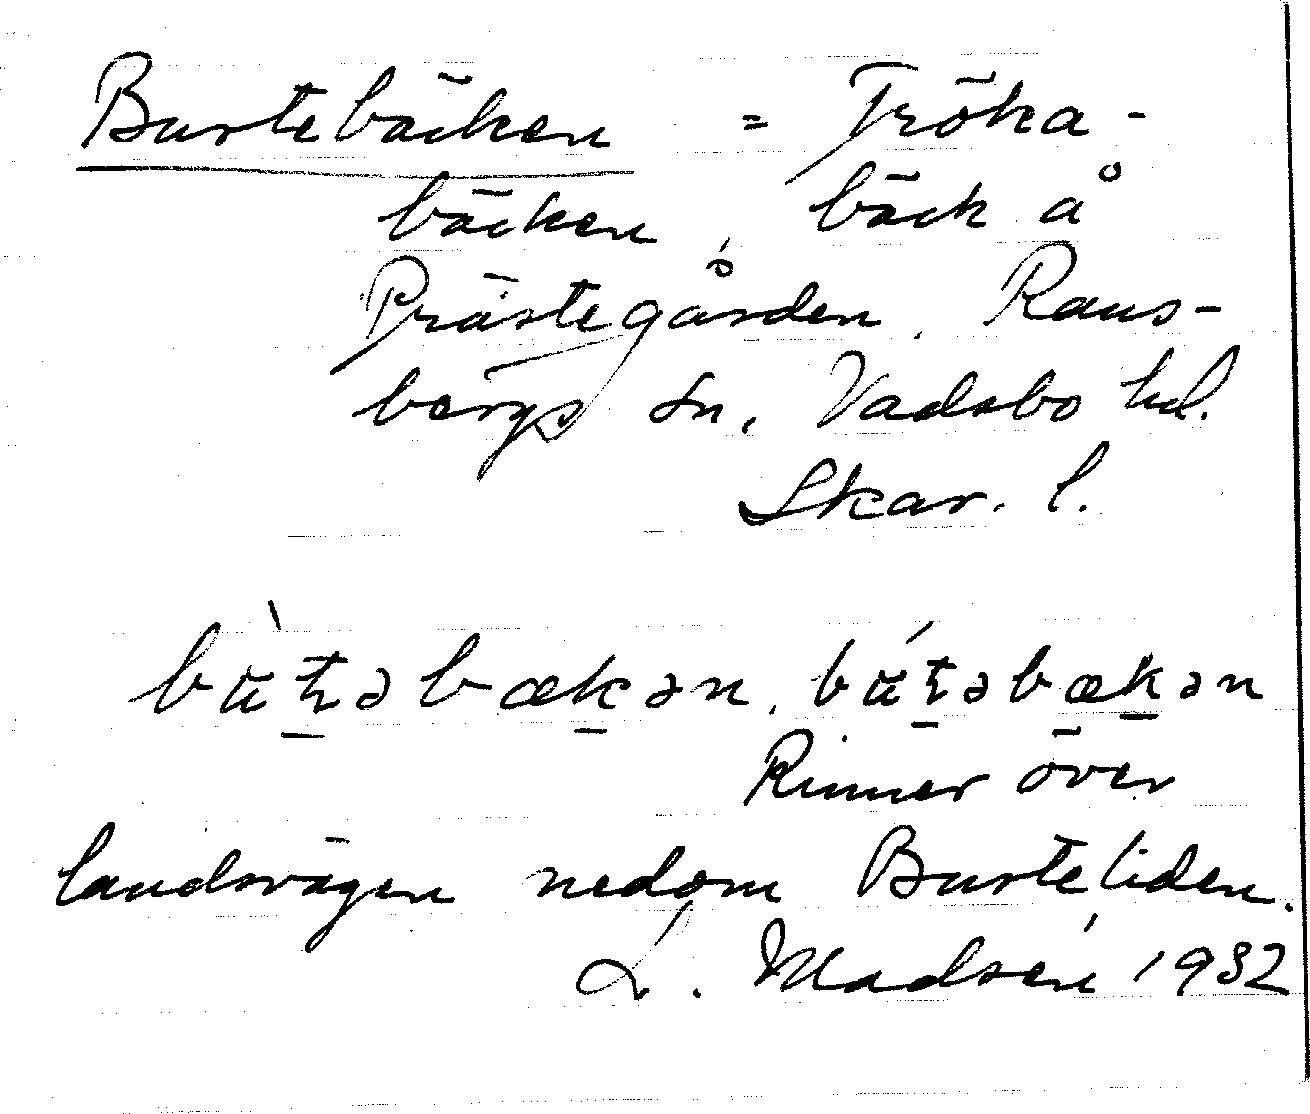 Burtebäcken = Tröka-
bäcken, bäck å
Prästegården, Rans-
bergs sn, Vadsbo hd.
Skar. l.
bèu̵təbækən, bátəbækən
Rinner över
landsvägen nedom Burteliden.
L. Madsén 1932